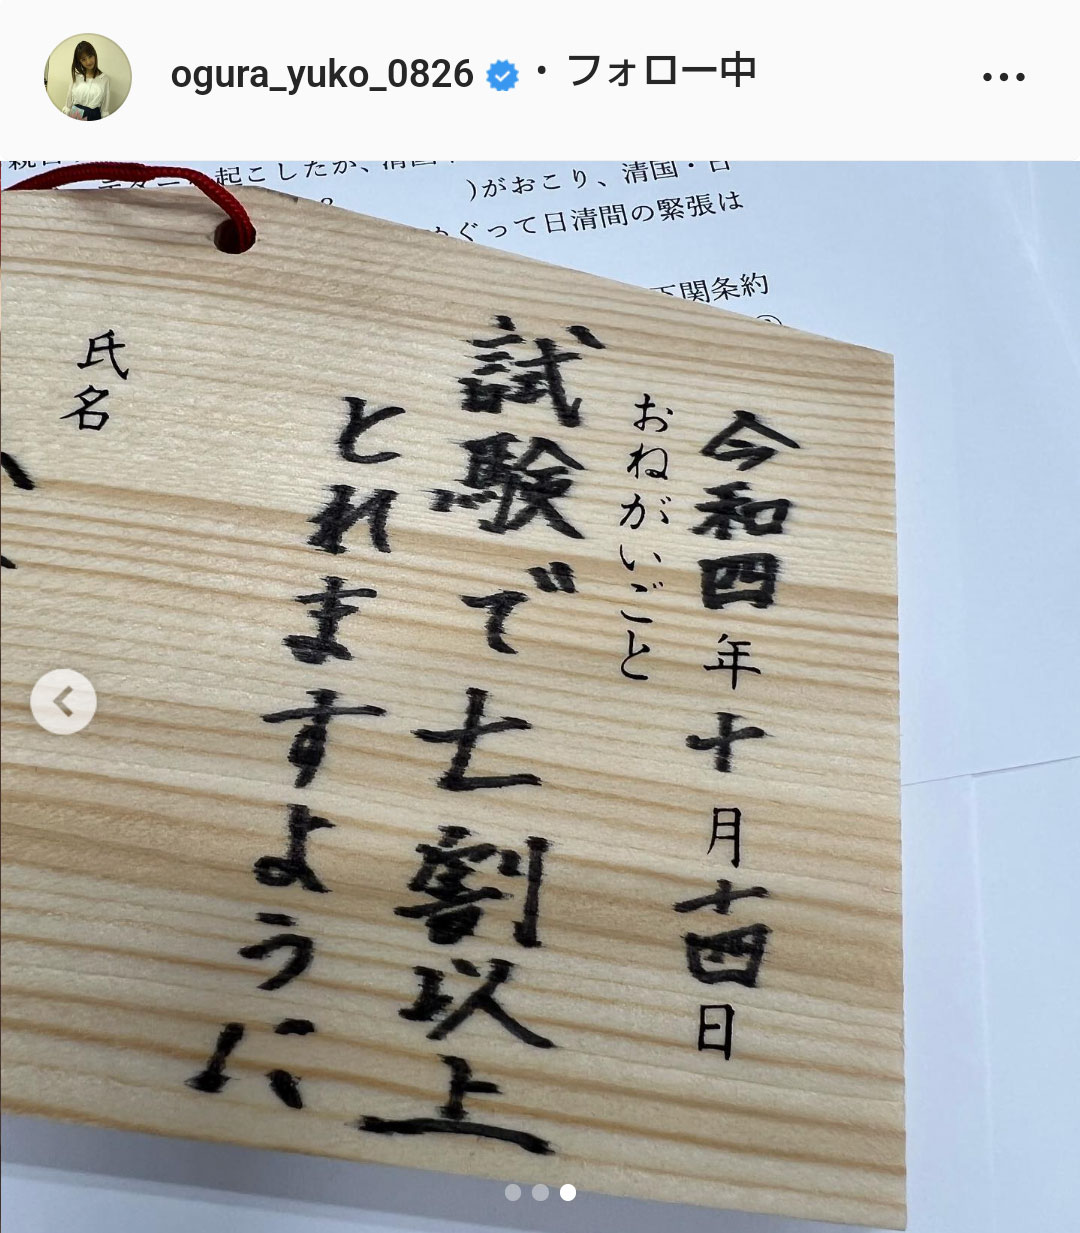 ogura_yuko_0826 • フォロー中
起こしたが、清国
)がおこり、清国・日
ぐって日清間の緊張は
下関条約
令和四年十月十四日
おねがいごと
試験で七割以上
とれますように
氏名